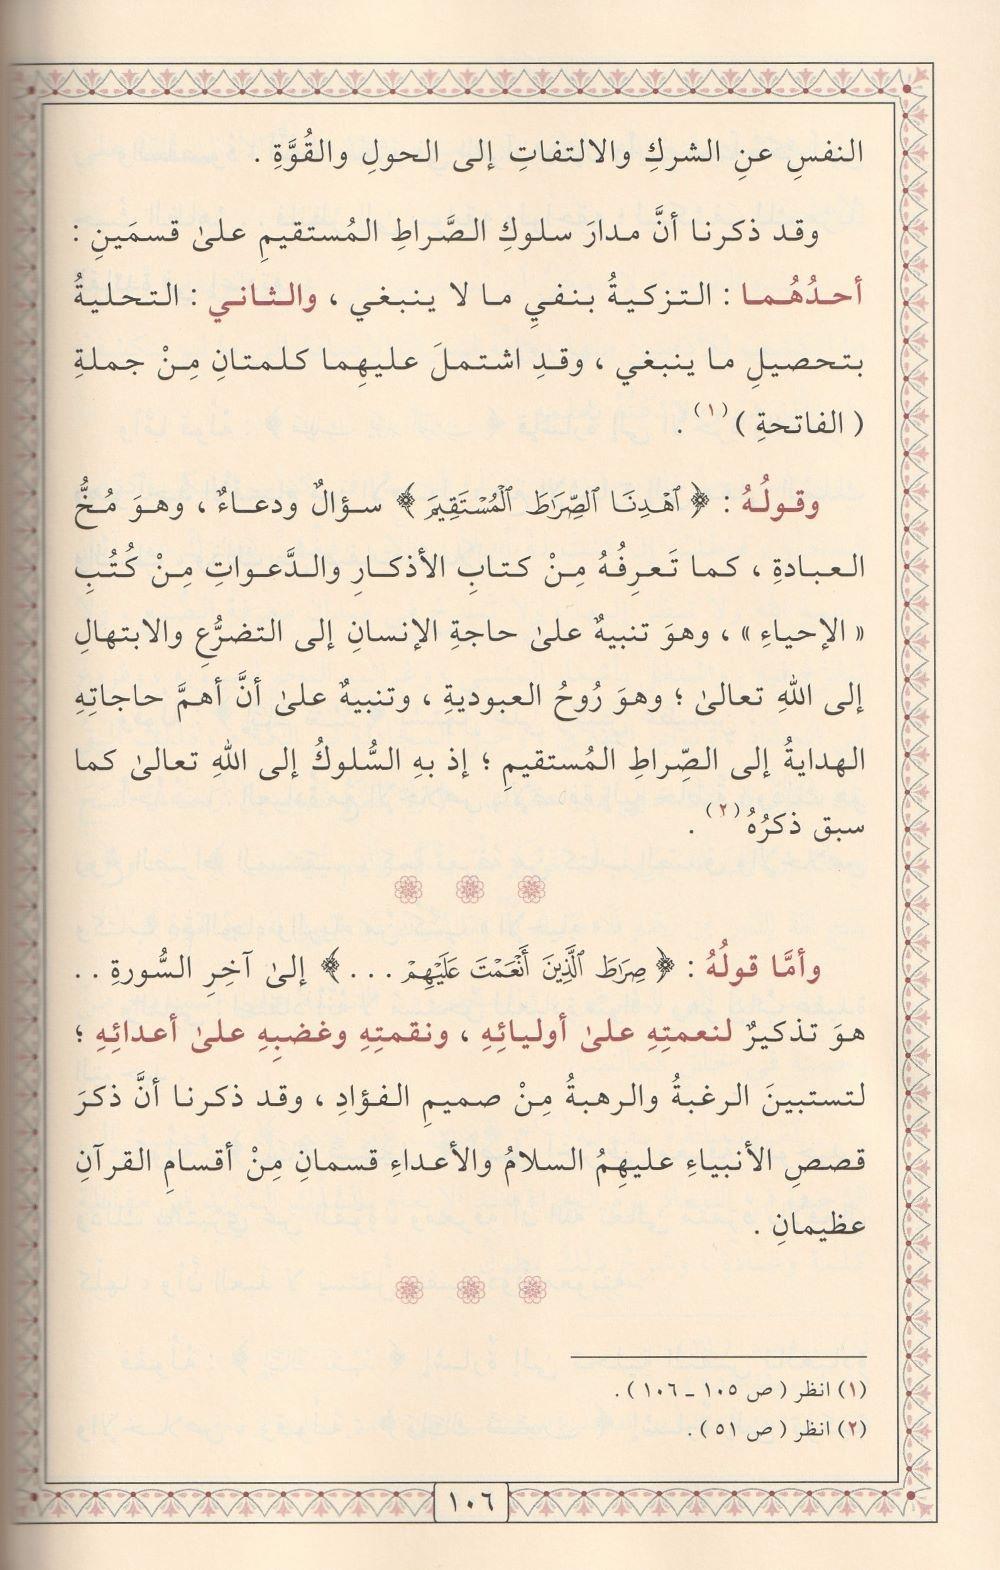 النفسِ عنِ الشركِ والالتفاتِ إلى الحولِ والقُوَّةِ .
وقد ذكرنا أنَّ مدارَ سلوكِ الصَّراطِ المُستقيمِ علىٰ قسمَينِ :
أحدُهُما : التزكيةُ بنفيِ ما لا ينبغي ، والثاني : التحليةُ
بتحصيلِ ما ينبغي ، وقدِ اشتملَ عليهِما كلمتانِ مِنْ جملةِ
( الفاتحةِ )(١) .
وقولُهُ : ﴿ ٱهْدِنَا ٱلصِّرَاطَ ٱلْمُسْتَقِيمَ ﴾ سؤالٌ ودعاءٌ ، وهوَ مُخُّ
العبادةِ ، كما تَعرِفُهُ مِنْ كتابِ الأذكارِ والدَّعواتِ مِنْ كُتُبِ
« الإحياءِ » ، وهوَ تنبيهٌ علىٰ حاجةِ الإنسانِ إلى التضرُّعِ والابتهالِ
إلى اللهِ تعالىٰ ؛ وهوَ رُوحُ العبوديةِ ، وتنبيهٌ علىٰ أنَّ أهمَّ حاجاتِهِ
الهدايةُ إلى الصِّراطِ المُستقيمِ ؛ إذ بهِ السُّلوكُ إلى اللهِ تعالىٰ كما
سبق ذكرُهُ(٢) .
وأمَّا قولُهُ : ﴿ صِرَاطَ ٱلَّذِينَ أَنْعَمْتَ عَلَيْهِمْ ... ﴾ إلىٰ آخرِ السُّورةِ . .
هوَ تذكيرٌ لنعمتِهِ علىٰ أوليائِهِ ، ونقمتِهِ وغضبِهِ علىٰ أعدائِهِ ؛
لتستبينَ الرغبةُ والرهبةُ مِنْ صميمِ الفؤادِ ، وقد ذكرنا أنَّ ذكرَ
قصصِ الأنبياءِ عليهِمُ السلامُ والأعداءِ قسمانِ مِنْ أقسامِ القرآنِ
عظيمانِ .
(١) انظر ( ص ١٠٥ ـ ١٠٦ ) .
(٢) انظر ( ص ٥١ ) .
١٠٦